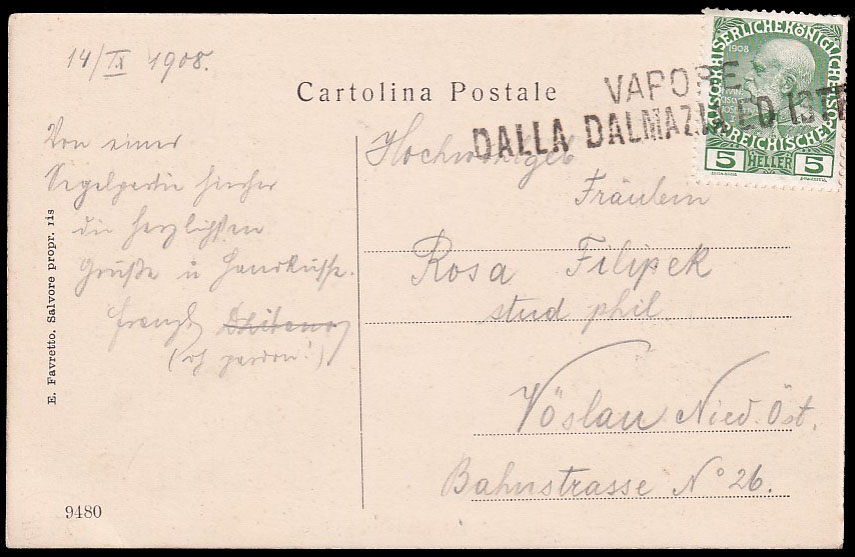 14/IX 1908.
Cartolina Postale
VAPORE
DALLA DALMAZIA ED ISTR
KAISERLICHE KÖNIGLICHE
1908
ÖSTERREICHISCHE POST
5 HELLER 5
Von einer
Segelpartie hierher
die herzlichsten
Grüße u Handküsse.
Franz
(oh pardon!)
Hochwohlgeb
Fräulein
Rosa Filipek
stud phil.
Vöslau Nied. Öst.
Bahnstrasse No 26.
E. Favretto, Salvore propr. ris
9480